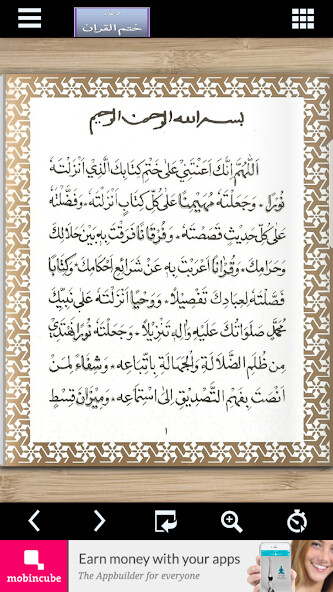 ختم القرآن
بسم الله الرحمن الرحيم
اَللّٰهُمَّ اِنَّكَ اَعَنْتَنِي عَلىٰ خَتْمِ كِتَابِكَ الَّذِي اَنْزَلْتَهُ
نُورًا. وَجَعَلْتَهُ مُهَيْمِنًا عَلىٰ كُلِّ كِتَابٍ اَنْزَلْتَهُ. وَفَضَّلْتَهُ
عَلىٰ كُلِّ حَدِيثٍ قَصَصْتَهُ. وَفُرْقَانًا فَرَقْتَ بِهِ بَيْنَ حَلَالِكَ
وَحَرَامِكَ. وَقُرْاٰنًا اَعْرَبْتَ بِهِ عَنْ شَرَائِعِ اَحْكَامِكَ. وَكِتَابًا
فَصَّلْتَهُ لِعِبَادِكَ تَفْصِيلًا. وَوَحْيًا اَنْزَلْتَهُ عَلىٰ نَبِيِّكَ
مُحَمَّدٍ صَلَوَاتُكَ عَلَيْهِ وَاٰلِهِ تَنْزِيلًا. وَجَعَلْتَهُ نُورًا نَهْتَدِي
مِنْ ظُلَمِ الضَّلَالَةِ وَالْجَهَالَةِ بِاتِّبَاعِهِ. وَشِفَاءً لِمَنْ
اَنْصَتَ بِفَهْمِ التَّصْدِيقِ اِلَى اسْتِمَاعِهِ. وَمِيزَانَ قِسْطٍ
١
mobincube
Earn money with your apps
The Appbuilder for everyone